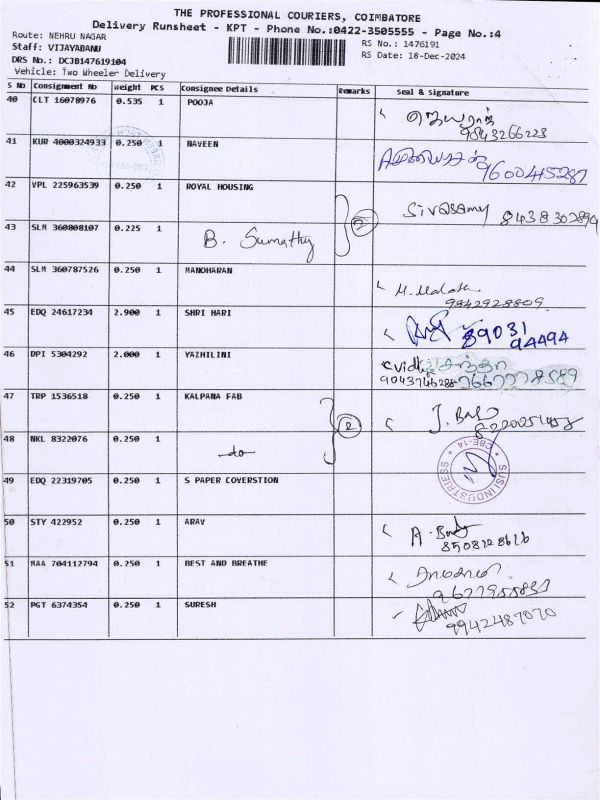 THE PROFESSIONAL COURIERS, COIMBATORE
Delivery Runsheet - KPT - Phone No.:0422-3505555 - Page No.:4
Route: NEHRU NAGAR
RS No.: 1476191
Staff: VIJAYABANU
RS Date: 18-Dec-2024
DRS No.: DCJB147619104
Vehicle: Two Wheeler Delivery
S No Consignment No Weight PCS Consignee Details Remarks Seal & Signature
40 CLT 16078976 0.535 1 POOJA
9843266223
41 KUR 4000324933 0.250 1 NAVEEN
9600415287
42 VPL 225963539 0.250 1 ROYAL HOUSING
2 Sivasamy
43 SLM 360808107 0.225 1 B. Sumathy
44 SLM 360787526 0.250 1 MANOHARAN
9842928809
45 EDQ 24617234 2.900 1 SHRI HARI
89031
94494
46 DPI 5304292 2.000 1 YAZHILINI
47 TRP 1536518 0.250 1 KALPANA FAB
2
48 NKL 8322076 0.250 1 -do-
SUSI INDUSTRIES CBE-14
49 EDQ 22319705 0.250 1 S PAPER COVERSTION
50 STY 422952 0.250 1 ARAV
51 MAA 704112794 0.250 1 BEST AND BREATHE
52 PGT 6374354 0.250 1 SURESH
9942487070